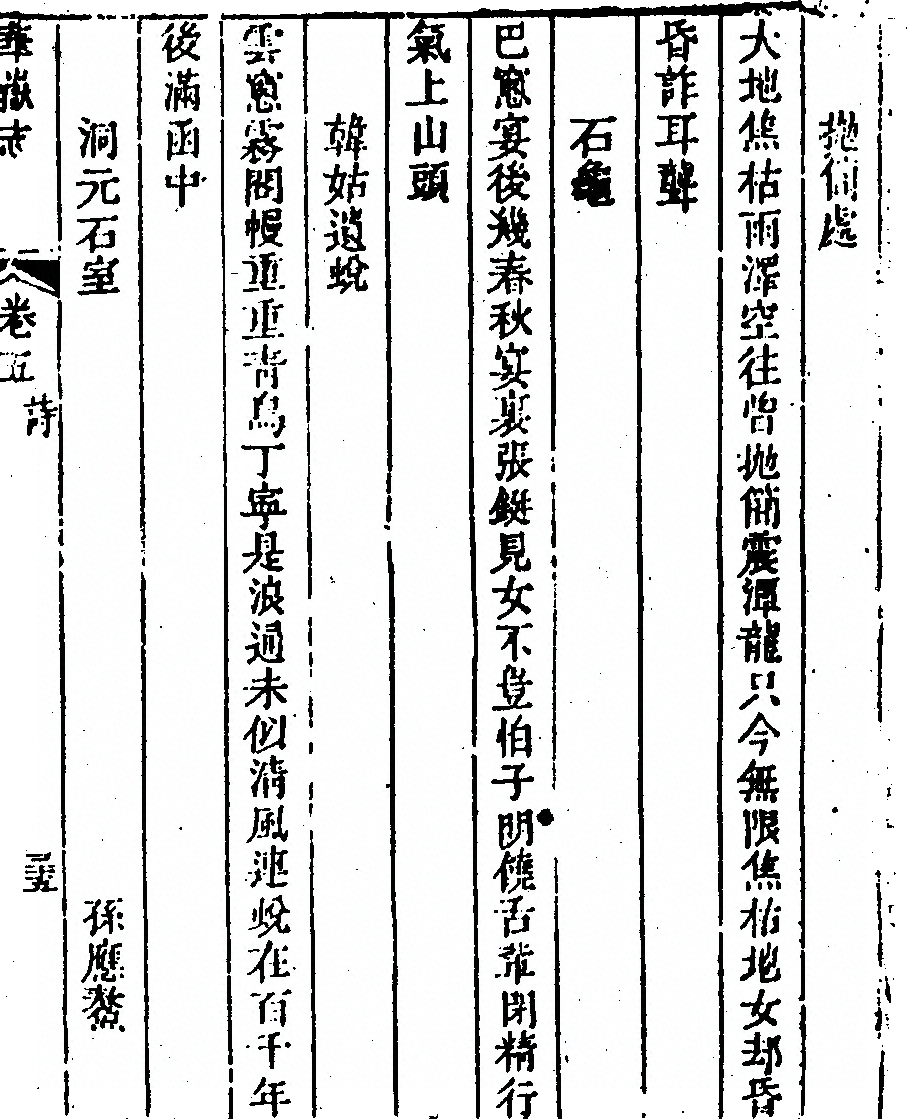 拋簡處
大地焦枯雨澤空往昔拋簡震潭龍只今無限焦枯地女却昏
昏詐耳聾
石龜
巴窻宴後幾春秋宴裏張鋌見女不登伯子明饒舌輩閉精行
氣上山頭
韓姑遺蛻
雲窻霧閣幔重重青鳥丁寧是浪過未似清風逃蛻在百千年
後滿函中
洞元石室 孫應鰲
華嶽志 卷五 詩